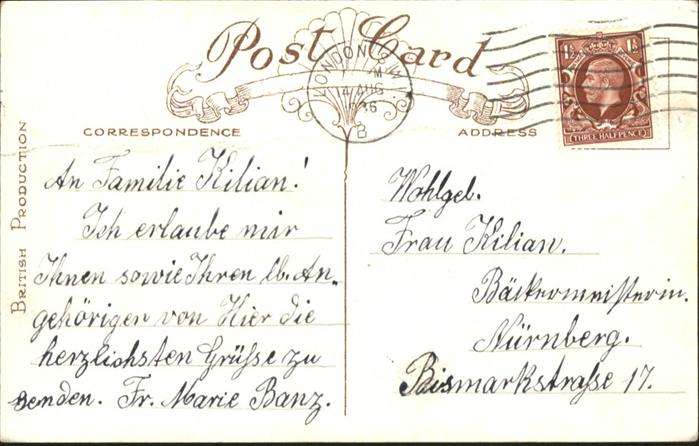 Post Card
LONDON S.W.
14 AUG
B
1½ 1½
THREE HALFPENCE
CORRESPONDENCE
ADDRESS
BRITISH PRODUCTION
An Familie Kilian!
Ich erlaube mir
Ihnen sowie Ihren lb. An-
gehöriger von Hier die
herzlichsten Grüsse zu
senden. Fr. Marie Banz.
Wohlgel.
Frau Kilian.
Bäckermeisterin.
Nürnberg.
Bismarkstrasse 17.